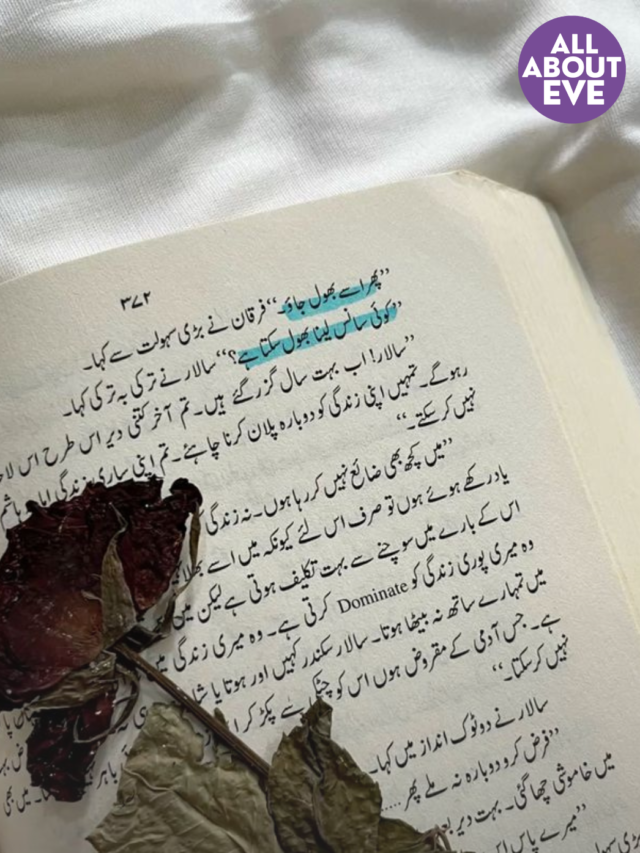 ALL
ABOUT
EVE
۳۷۲
”پھر اسے بھول جاؤ۔“ فرقان نے بڑی سہولت سے کہا۔
”کوئی سانس لینا بھول سکتا ہے؟“ سالار نے ترکی بہ ترکی کہا۔
”سالار! اب بہت سال گزر گئے ہیں۔ تم آخر کتنی دیر اس طرح اس
رہو گے۔ تمہیں اپنی زندگی کو دوبارہ پلان کرنا چاہئے۔ تم اپنی ساری زندگی
نہیں کر سکتے۔“
”میں کچھ بھی ضائع نہیں کر رہا ہوں۔ نہ زندگی
یاد رکھے ہوئے ہوں تو صرف اس لئے کیونکہ میں اسے
اس کے بارے میں سوچنے سے بہت تکلیف ہوتی ہے لیکن میں
وہ میری پوری زندگی کو Dominate کرتی ہے۔ وہ میری زندگی
میں تمہارے ساتھ نہ بیٹھا ہوتا۔ سالار سکندر کہیں اور ہوتا یا
ہے۔ جس آدمی کے مقروض ہوں اس کو چٹکی سے پکڑ کر
نہیں کر سکتا۔“
سالار نے دوٹوک انداز میں کہا۔
”فرض کرو دوبارہ نہ ملے پھر.....
میں خاموشی چھا گئی۔ بہت دیر
”میرے پاس اس